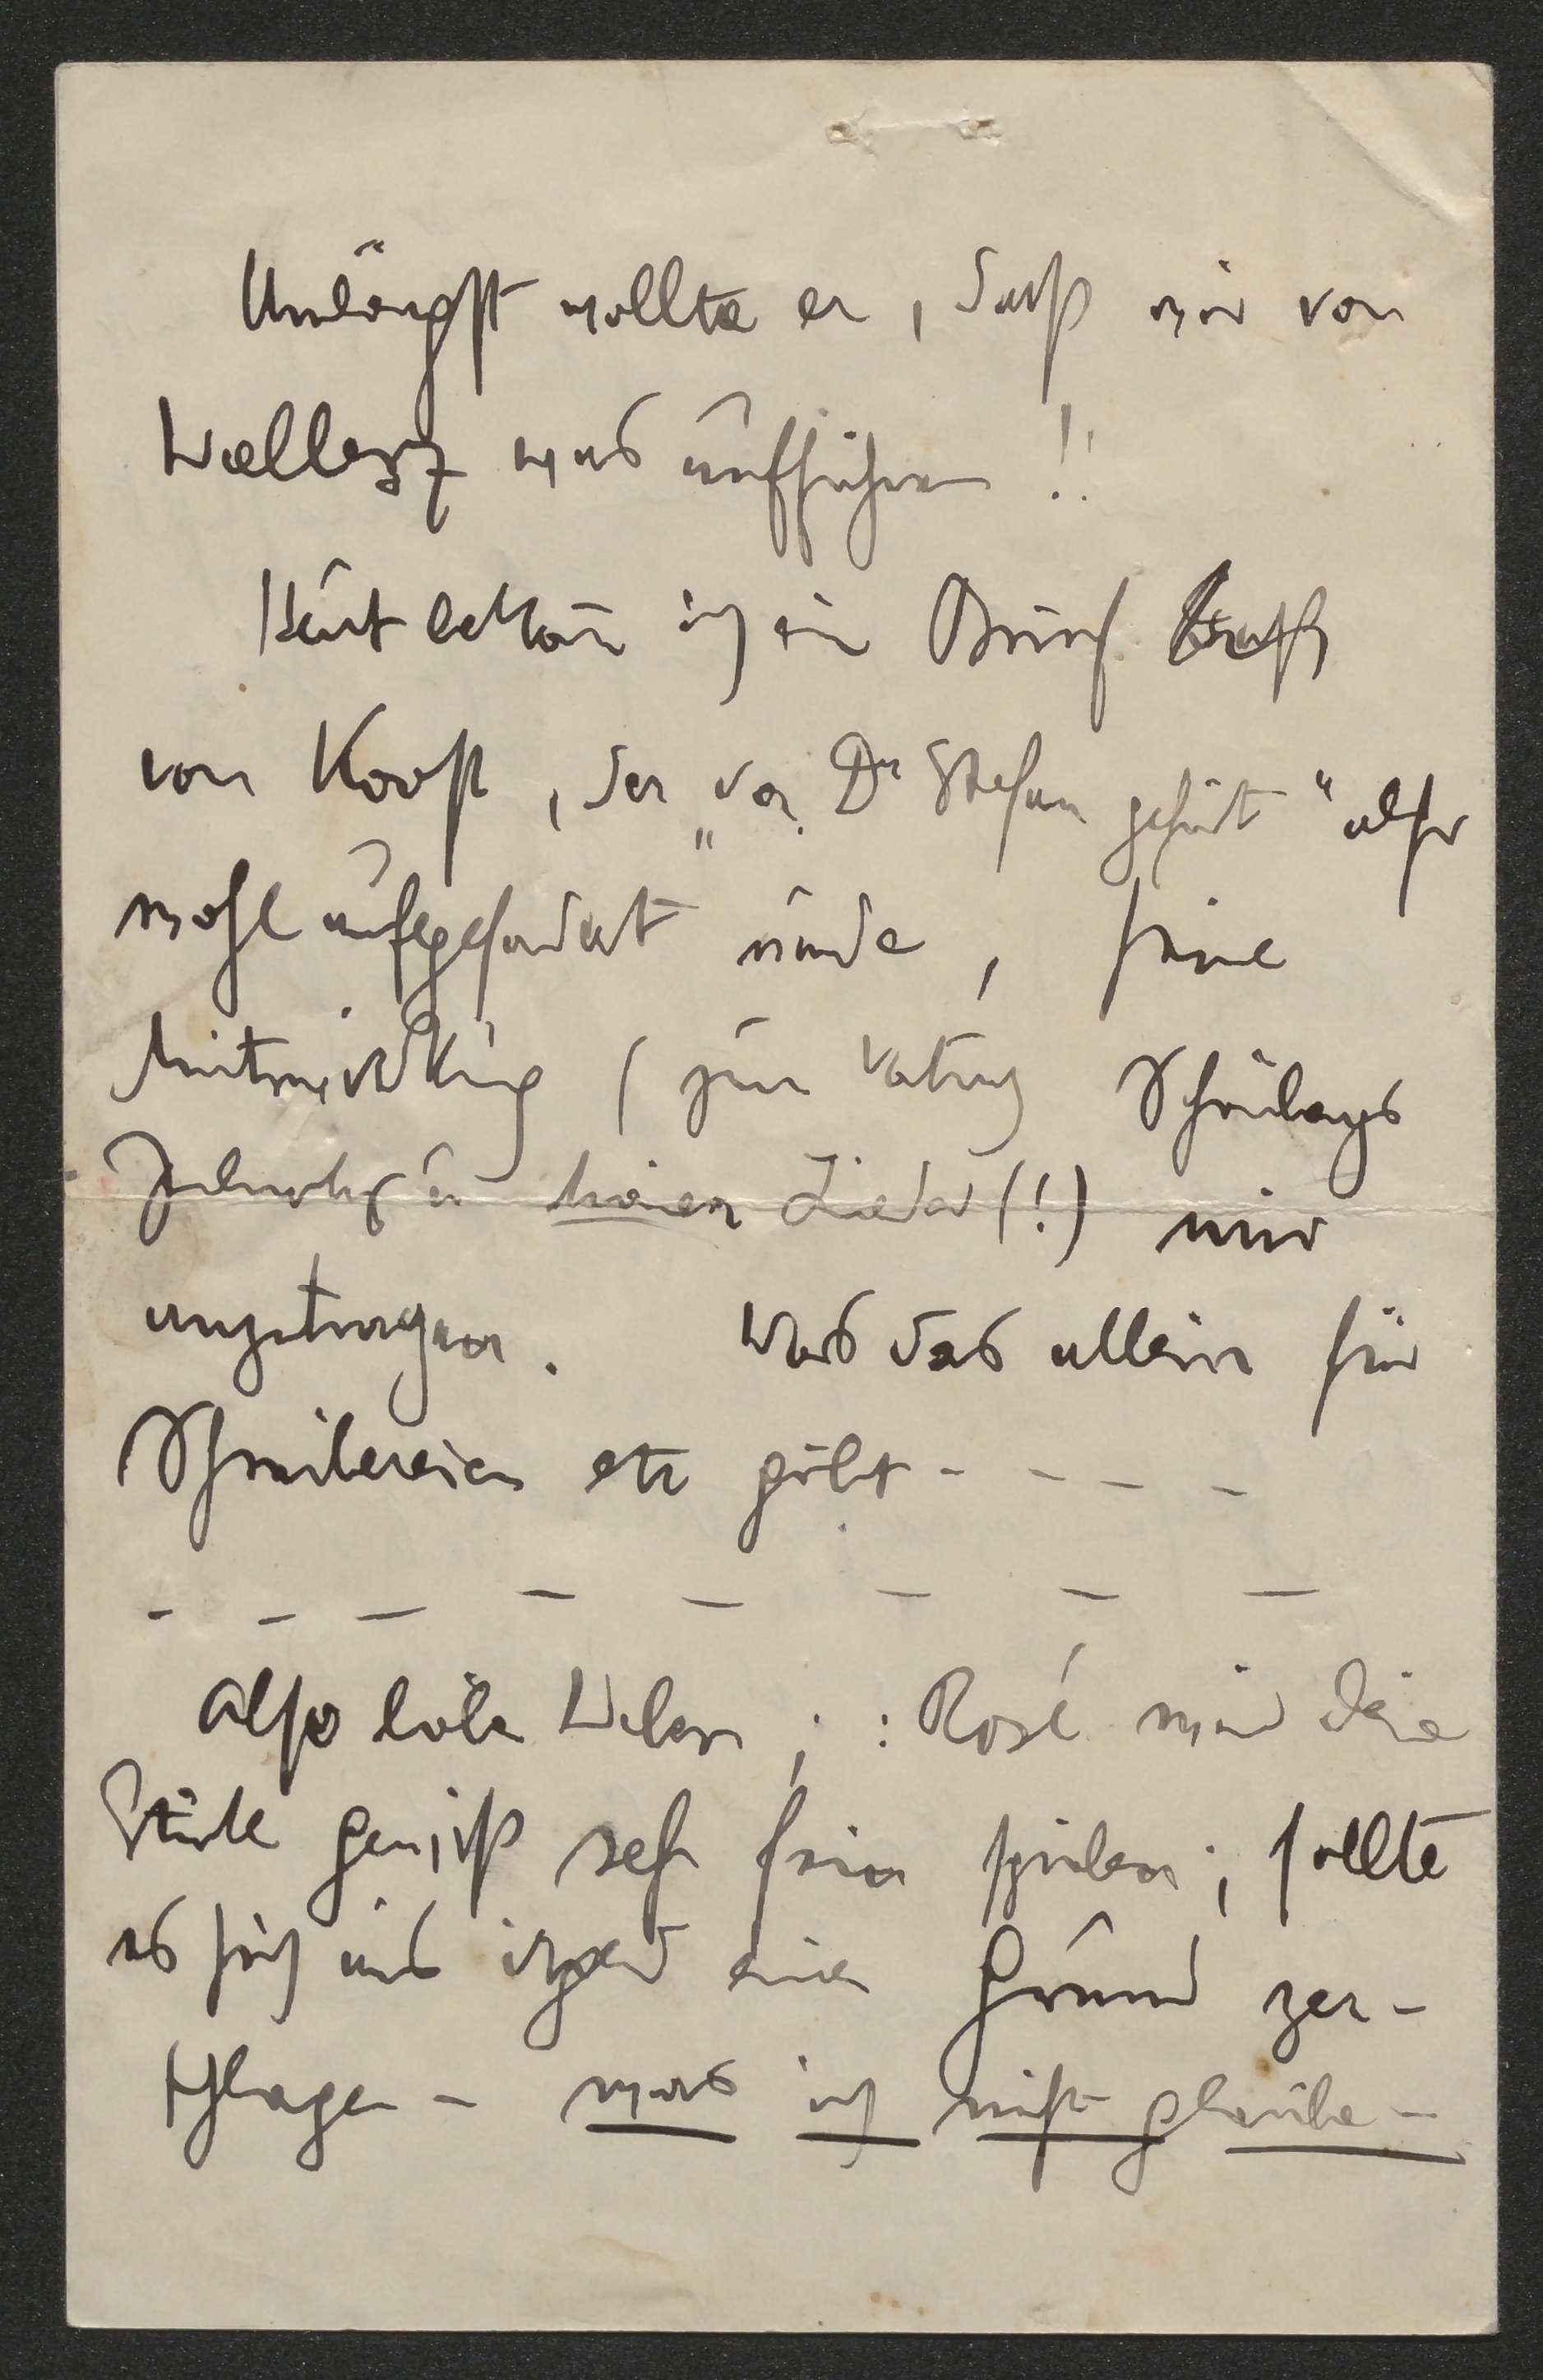 Unlängst wollte er, daß wir von
Wellesz was aufführen!!
Heut bekam ich ein Brief
von Korst, der „von Dr Stefan gehört" also
wohl aufgefordert wurde, seine
Mitwirkung (zur Leitung Schönbergs
u meiner Lieder (!) mir
anzutragen. Was das allein für
Schreibereien etc gibt - - - -
- - - - - - - -
Also lieber Webern, : Rosé wird Deine
Stücke gewiß sehr fein spielen; sollte
es sich aus irgend einem Grund zer-
schlagen - was ich nicht glaube -